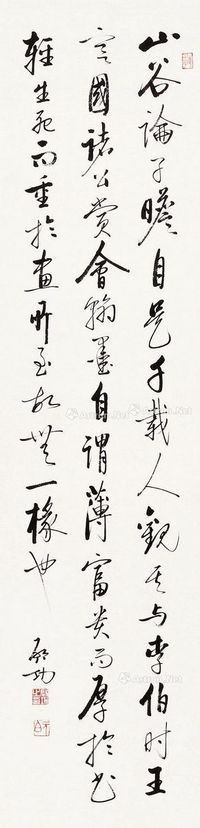 山谷論子瞻自是千載人觀其与李伯時王
定國諸公賞會翰墨自謂薄富貴而厚於書
輕生死而重於畫所至故無一椽也
啟功